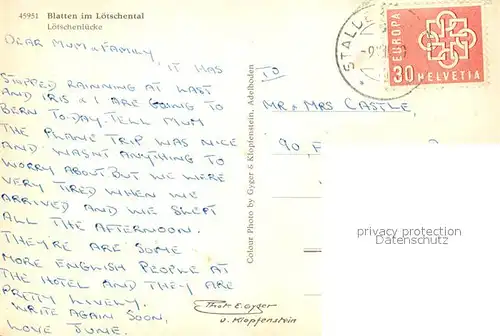 45951 Blatten im Lötschental
Lötschenlücke
DEAR MUM & FAMILY,
IT HAS
STOPPED RAINNING AT LAST
AND IRIS & I ARE GOING TO
BERN TO-DAY. TELL MUM
THE PLANE TRIP WAS NICE
AND WASNT ANYTHING TO
WORRY ABOUT BUT WE WERE
VERY TIRED WHEN WE
ARRIVED AND WE SLEPT
ALL THE AFTERNOON.
THEY'RE ARE SOME
MORE ENGLISH PEOPLE AT
THE HOTEL AND THEY ARE
PRETTY LIVELY.
WRITE AGAIN SOON,
LOVE JUNE.
Colour Photo by Gyger & Klopfenstein, Adelboden
Phot. E. Gyger
u. Klopfenstein
TO
MR & MRS CASTLE,
90, F
STALL
-9
EUROPA
30 HELVETIA
privacy protection
www.ansichtskarten-center.de